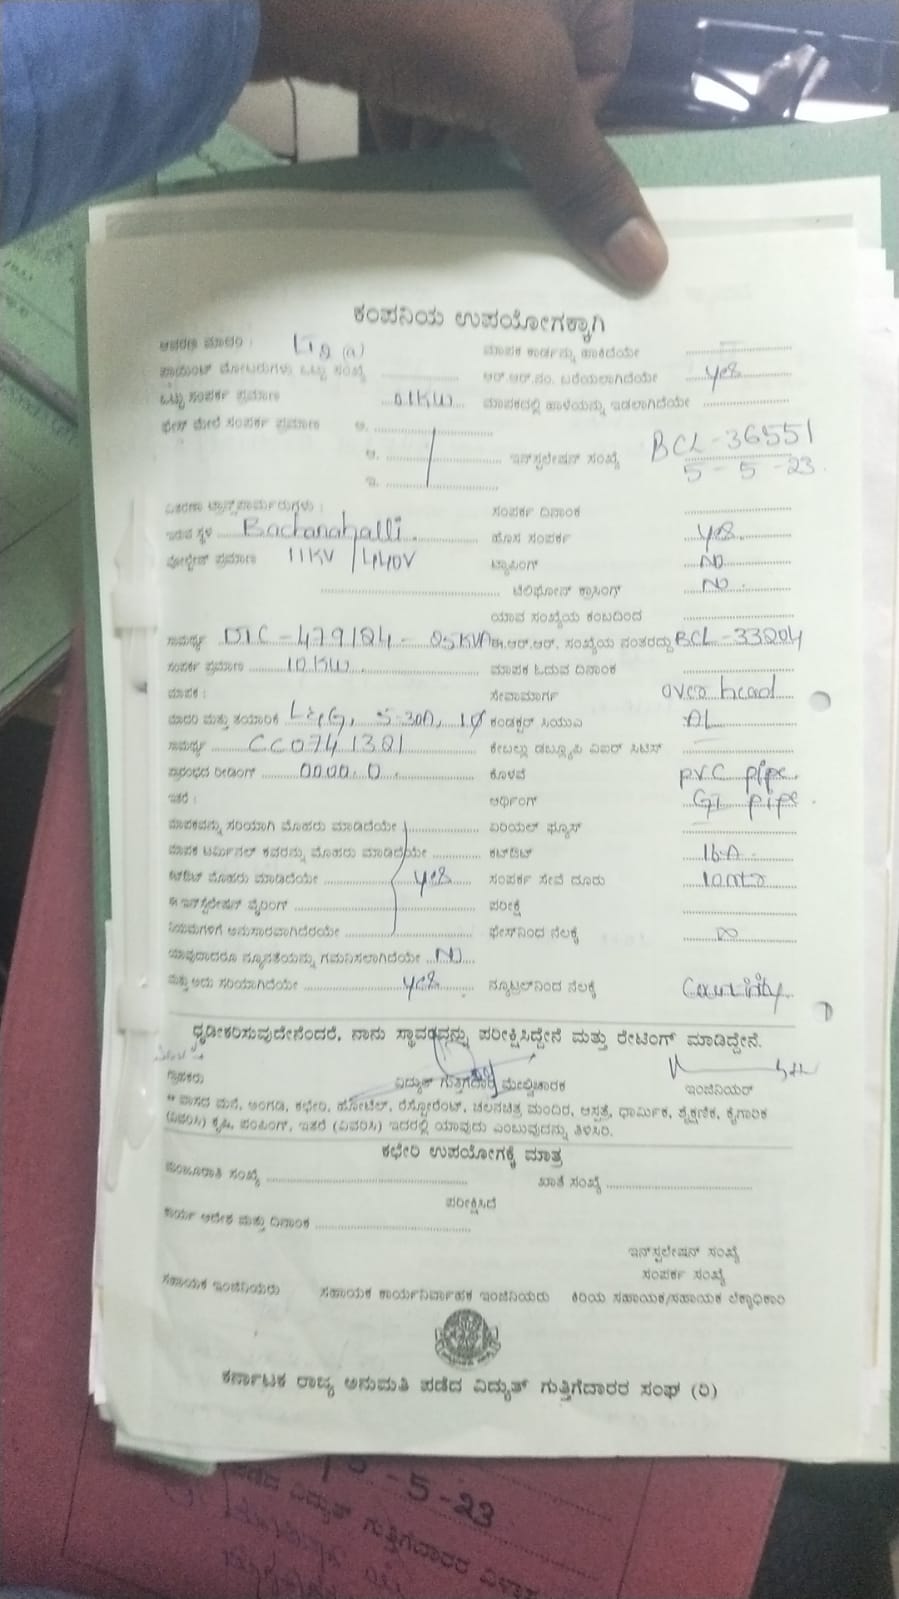 ಕಂಪನಿಯ ಉಪಯೋಗಕ್ಕಾಗಿ
ಆವರಣ ಮಾದರಿ : ಮಾಪಕ ಕಾರ್ಡನ್ನು ಹಾಕಿದೆಯೇ
ಪಾಯಿಂಟ್ ಮೋಟರುಗಳು ಒಟ್ಟು ಸಂಖ್ಯೆ ಆರ್.ಆರ್.ನಂ. ಬರೆಯಲಾಗಿದೆಯೇ yes
ಒಟ್ಟು ಸಂಪರ್ಕ ಪ್ರಮಾಣ 01KW ಮಾಪಕದಲ್ಲಿ ಹಾಳೆಯನ್ನು ಇಡಲಾಗಿದೆಯೇ
ಫೇಸ್ ಮೇಲೆ ಸಂಪರ್ಕ ಪ್ರಮಾಣ ಅ.
ಆ. ಇನ್‌ಸ್ಟಲೇಷನ್ ಸಂಖ್ಯೆ BCL-36551
5-5-23
ಇ.
ವಿತರಣಾ ಟ್ರಾನ್ಸ್‌ಫಾರ್ಮರುಗಳು : ಸಂಪರ್ಕ ದಿನಾಂಕ
ಇರುವ ಸ್ಥಳ Bachanahalli ಹೊಸ ಸಂಪರ್ಕ yes
ವೋಲ್ಟೇಜ್ ಪ್ರಮಾಣ 11KV /440V ಟ್ಯಾಪಿಂಗ್ NO
ಟೆಲಿಫೋನ್ ಕ್ರಾಸಿಂಗ್ NO
ಯಾವ ಸಂಖ್ಯೆಯ ಕಂಬದಿಂದ
ಸಾಮರ್ಥ್ಯ DTC-479124- 25KVA ಈ.ಆರ್.ಆರ್. ಸಂಖ್ಯೆಯ ನಂತರದ್ದು BCL-33204
ಸಂಪರ್ಕ ಪ್ರಮಾಣ 10KW ಮಾಪಕ ಓದುವ ದಿನಾಂಕ
ಮಾಪಕ : ಸೇವಾಮಾರ್ಗ over head
ಮಾದರಿ ಮತ್ತು ತಯಾರಿಕೆ L&G, 5-30A, 1Ø ಕಂಡಕ್ಟರ್ ಸಿಯುಎ AL
ಸಾಮರ್ಥ್ಯ CC0741321 ಕೇಬಲ್ಲು ಡಬ್ಲ್ಯೂಪಿ ವಿಐರ್ ಸಿಟಿಸ್
ಪ್ರಾರಂಭದ ರೀಡಿಂಗ್ 0000.0 ಕೊಳವೆ PVC pipe.
ಇತರೆ : ಅರ್ಥಿಂಗ್ GI pipe.
ಮಾಪಕವನ್ನು ಸರಿಯಾಗಿ ಮೊಹರು ಮಾಡಿದೆಯೇ ಏರಿಯಲ್ ಫ್ಯೂಸ್
ಮಾಪಕ ಟರ್ಮಿನಲ್ ಕವರನ್ನು ಮೊಹರು ಮಾಡಿದೆಯೇ ಕಟ್‌ಔಟ್ 16A
ಕಟ್‌ಔಟ್ ಮೊಹರು ಮಾಡಿದೆಯೇ yes ಸಂಪರ್ಕ ಸೇವೆ ದೂರು 10mtr
ಈ ಇನ್‌ಸ್ಟಲೇಷನ್ ವೈರಿಂಗ್ ಪರೀಕ್ಷೆ
ನಿಯಮಗಳಿಗೆ ಅನುಸಾರವಾಗಿದೆಯೇ ಫೇಸ್‌ನಿಂದ ನೆಲಕ್ಕೆ ∞
ಯಾವುದಾದರೂ ನ್ಯೂನತೆಯನ್ನು ಗಮನಿಸಲಾಗಿದೆಯೇ NO
ಮತ್ತು ಅದು ಸರಿಯಾಗಿದೆಯೇ yes ನ್ಯೂಟ್ರಲ್‌ನಿಂದ ನೆಲಕ್ಕೆ
ಧೃಡೀಕರಿಸುವುದೇನೆಂದರೆ, ನಾನು ಸ್ಥಾವರವನ್ನು ಪರೀಕ್ಷಿಸಿದ್ದೇನೆ ಮತ್ತು ರೇಟಿಂಗ್ ಮಾಡಿದ್ದೇನೆ.
ಗ್ರಾಹಕರು ವಿದ್ಯುತ್ ಗುತ್ತಿಗೆದಾರ ಮೇಲ್ವಿಚಾರಕ ಇಂಜಿನಿಯರ್
* ವಾಸದ ಮನೆ, ಅಂಗಡಿ, ಕಛೇರಿ, ಹೋಟೆಲ್, ರೆಸ್ಟೋರೆಂಟ್, ಚಲನಚಿತ್ರ ಮಂದಿರ, ಆಸ್ಪತ್ರೆ, ಧಾರ್ಮಿಕ, ಶೈಕ್ಷಣಿಕ, ಕೈಗಾರಿಕೆ
(ವಿವರಿಸಿ) ಕೃಷಿ, ಪಂಪಿಂಗ್, ಇತರೆ (ವಿವರಿಸಿ) ಇದರಲ್ಲಿ ಯಾವುದು ಎಂಬುವುದನ್ನು ತಿಳಿಸಿರಿ.
ಕಛೇರಿ ಉಪಯೋಗಕ್ಕೆ ಮಾತ್ರ
ಮಂಜೂರಾತಿ ಸಂಖ್ಯೆ ಖಾತೆ ಸಂಖ್ಯೆ
ಪರೀಕ್ಷಿಸಿದೆ
ಕಾರ್ಯ ಆದೇಶ ಮತ್ತು ದಿನಾಂಕ
ಇನ್‌ಸ್ಟಲೇಷನ್ ಸಂಖ್ಯೆ
ಸಂಪರ್ಕ ಸಂಖ್ಯೆ
ಸಹಾಯಕ ಇಂಜಿನಿಯರು ಸಹಾಯಕ ಕಾರ್ಯನಿರ್ವಾಹಕ ಇಂಜಿನಿಯರು ಕಿರಿಯ ಸಹಾಯಕ/ಸಹಾಯಕ ಲೆಕ್ಕಾಧಿಕಾರಿ
ಕರ್ನಾಟಕ ರಾಜ್ಯ ಅನುಮತಿ ಪಡೆದ ವಿದ್ಯುತ್ ಗುತ್ತಿಗೆದಾರರ ಸಂಘ (ರಿ)
5-5-23
ವಿದ್ಯುತ್ ಗುತ್ತಿಗೆದಾರರ